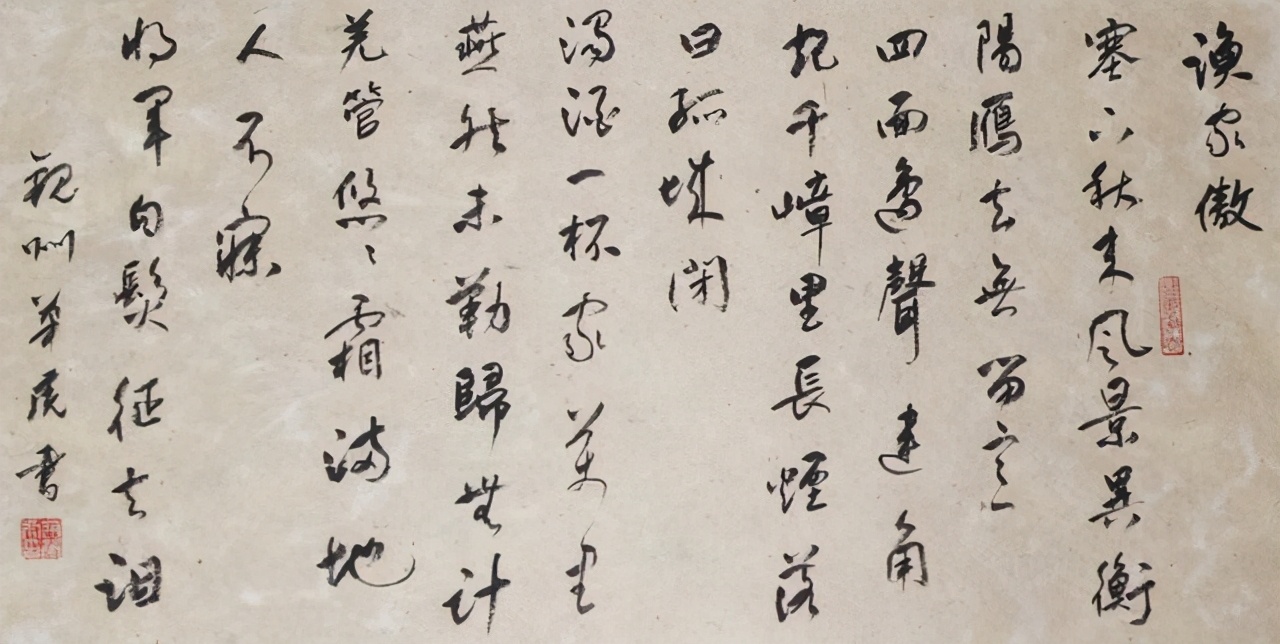 漁家傲
塞下秋来风景異衡
陽鴈去無留意
四面邊聲連角
起千嶂里長煙落
日孤城闭
濁酒一杯家萬里
燕然未勒歸無計
羌管悠〻霜满地
人不寐
将军白髮征夫泪
州華書